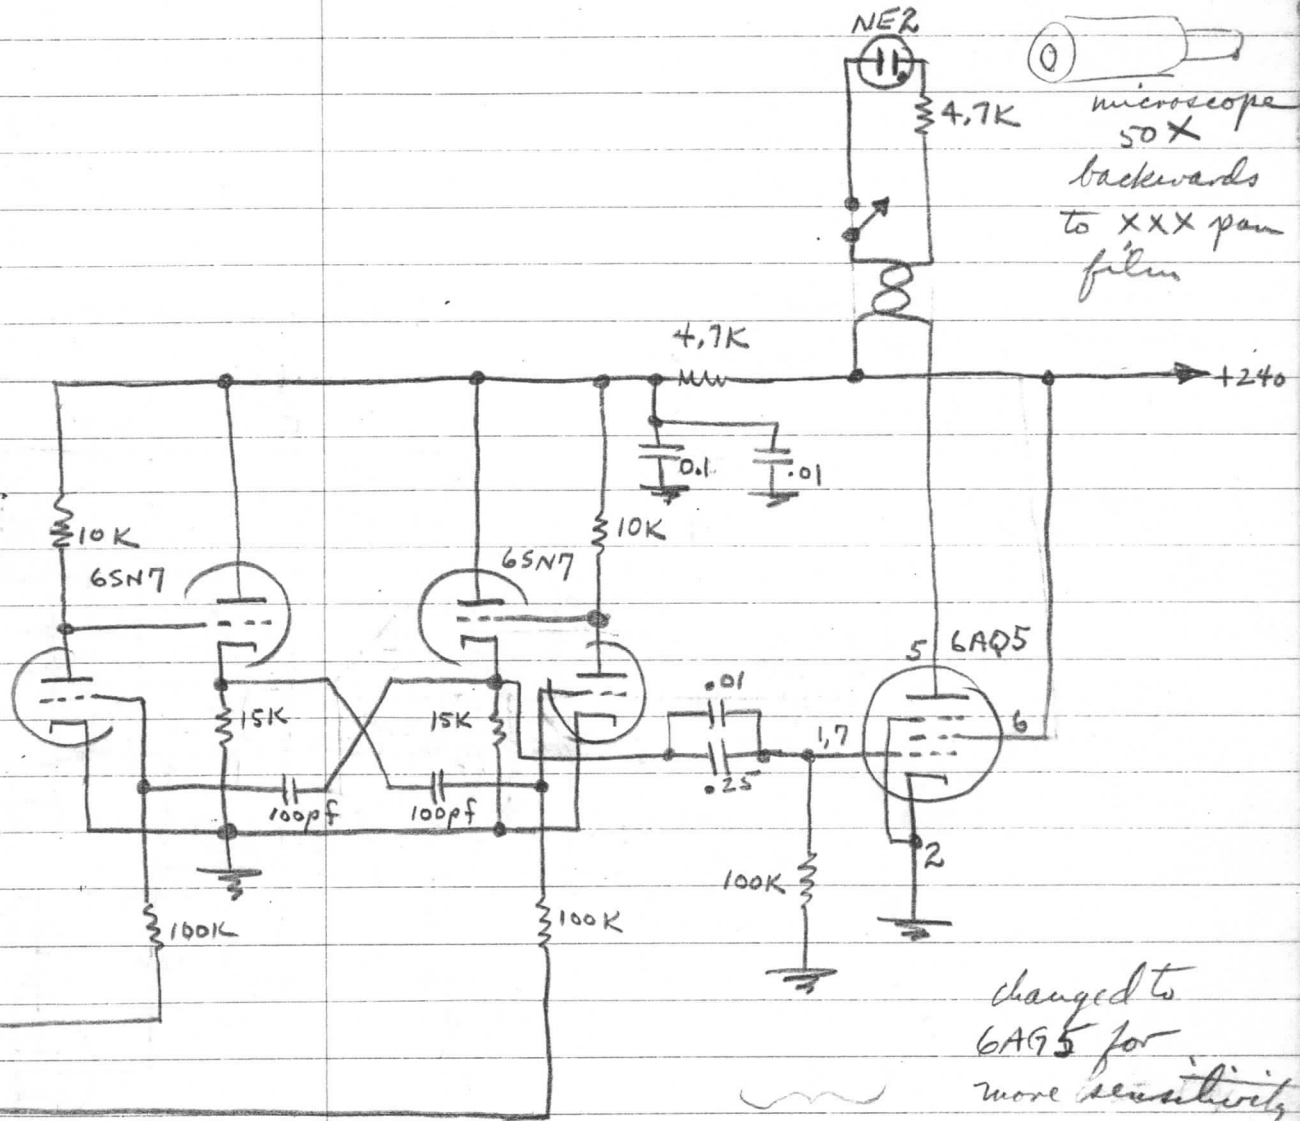 NE2
4.7K
microscope
50X
backwards
to XXX pan
film
4.7K
+240
0.1
.01
10K
10K
6SN7
6SN7
5
6AQ5
.01
15K
15K
1,7
6
.25
100pf
100pf
2
100K
100K
100K
changed to
6AG5 for
more sensitivity